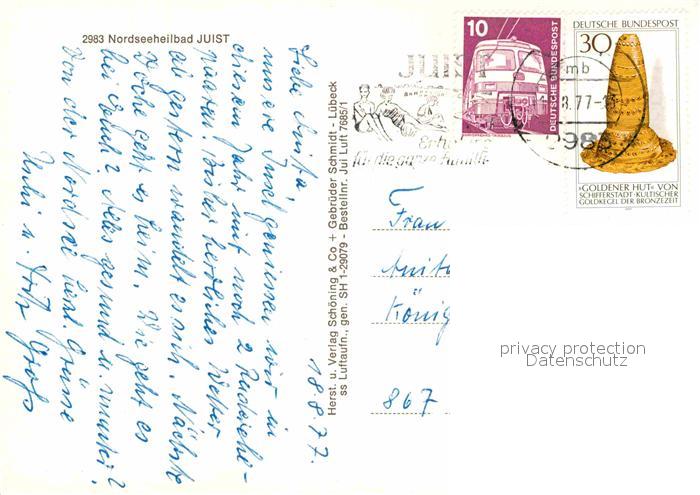 2983 Nordseeheilbad JUIST
18.8.77.
Liebe Anita,
unsere Insel genießen wir in
diesem Jahr mit noch 2
Bisher herrliches Wetter
seit gestern wandelt es sich. Nächste
Woche geht es heim. Wie geht es
bei Euch? Alles gesund u. munter?
Von der Nordsee herzl. Grüsse
u. Fritz Groß
Herst. u. Verlag Schöning & Co + Gebrüder Schmidt - Lübeck
ss Luftaufn., gen. SH 1-29079 - Bestellnr. Jui Luft 7685/1
JUIST
für die ganze Familie
10
DEUTSCHE BUNDESPOST
DEUTSCHE BUNDESPOST
30
mb
8.77
2983
»GOLDENER HUT« VON
SCHIFFERSTADT·KULTISCHER
GOLDKEGEL DER BRONZEZEIT
Frau
Anita
König
867
privacy protection
Datenschutz